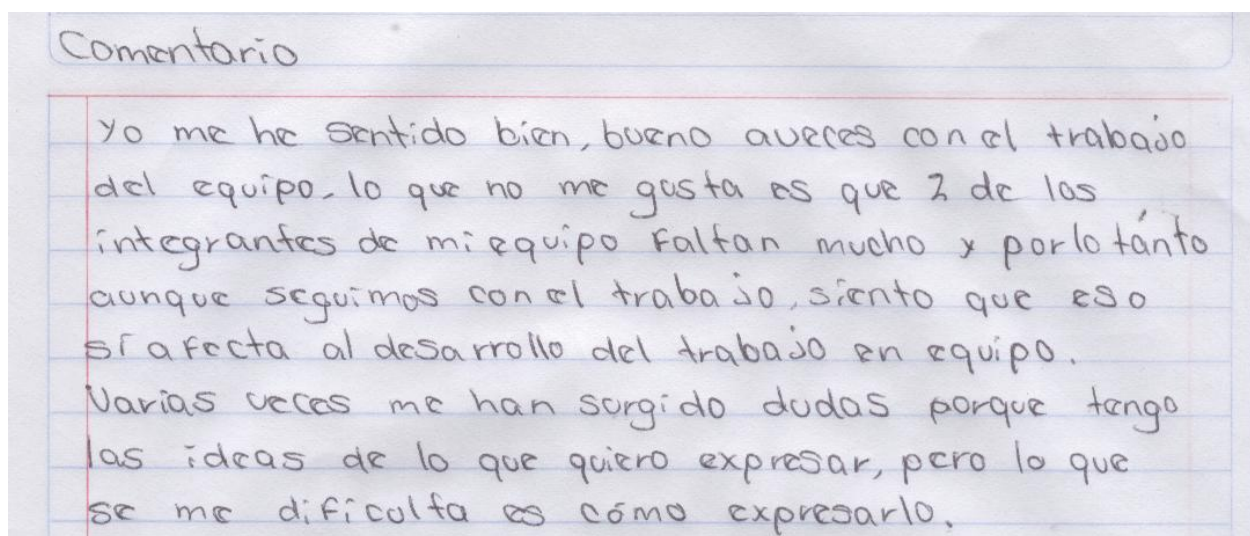 Comentario
Yo me he sentido bien, bueno aveces con el trabajo
del equipo, lo que no me gusta es que 2 de los
integrantes de mi equipo faltan mucho y por lo tánto
aunque seguimos con el trabajo, siento que eso
sí afecta al desarrollo del trabajo en equipo.
Varias veces me han surgido dudas porque tengo
las ideas de lo que quiero expresar, pero lo que
se me dificulta es cómo expresarlo.